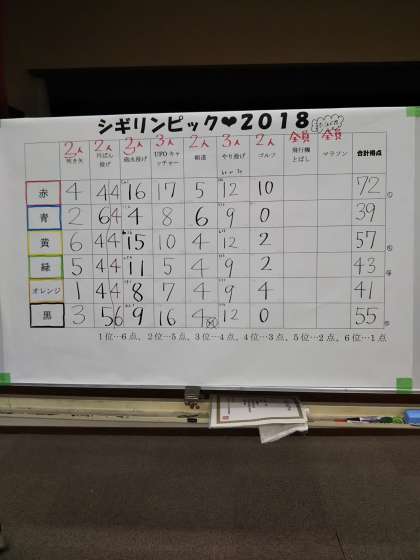 シギリンピック♥2018
2人 2人 2人 3人 2人 3人 2人 全員 全員
吹き矢 円ばん投げ 砲丸投げ UFOキャッチャー 剣道 やり投げ ゴルフ 飛行機とばし マラソン 合計得点
赤 4 44 16 17 5 12 10 72 ①
青 2 64 4 8 6 9 0 39
黄 6 44 15 10 4 12 2 57
緑 5 44 11 5 4 9 2 43
オレンジ 1 44 8 7 4 9 4 41
黒 3 56 9 16 4 12 0 55
1位…6点、2位…5点、3位…4点、4位…3点、5位…2点、6位…1点